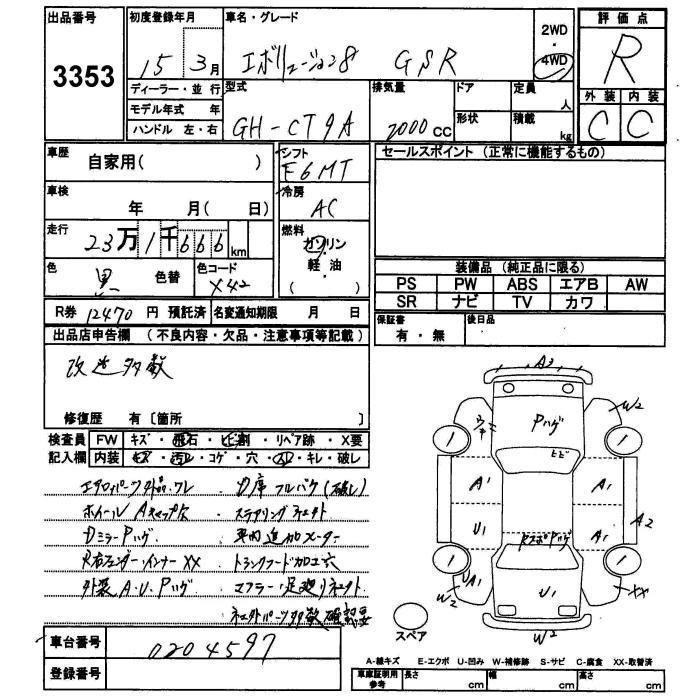 出品番号
3353
初度登録年月
15 3月
ディーラー・並行
モデル年式 年
ハンドル 左・右
車名・グレード
エボリューション8 GSR
2WD
・
4WD
評価点
R
外装 内装
C C
型式
GH-CT9A
排気量
2000 CC
ドア
形状
定員
人
積載
kg
車歴
自家用( )
車検
年 月( 日)
走行
23万1千666km
色
黒
色替
色コード
X42
シフト
F6MT
冷房
AC
燃料
ガソリン
軽・油
( )
セールスポイント(正常に機能するもの)
装備品(純正品に限る)
PS PW ABS エアB AW
SR ナビ TV カワ
保証書
有・無
後日品
R券 12470 円 預託済 名変通知期限 月 日
出品店申告欄 (不良内容・欠品・注意事項等記載)
改造多数
修復歴 有〔箇所 〕
検査員 FW キズ・飛石・ヒビ割・リペア跡・X要
記入欄 内装 キズ・汚レ・コゲ・穴・スレ・キレ・破レ
エアロパーツ外品・ワレ
ホイールAキャップ欠
DミラーPハゲ
R右フェンダーインナーXX
外装A.U.Pハゲ
フルバケ(破レ)
車内追加メーター
トランクフード加工穴
マフラー・足廻リ
A3
W2
Pハゲ
ヒビ
A1
A1
A2
U1
A1
U1
A1
U1
W2
XX
W2
スペア
車台番号
0204597
登録番号
A-線キズ E-エクボ U-凹み W-補修跡 S-サビ C-腐食 XX-取替済
車庫証明用
参考
長さ cm
幅 cm
高さ cm